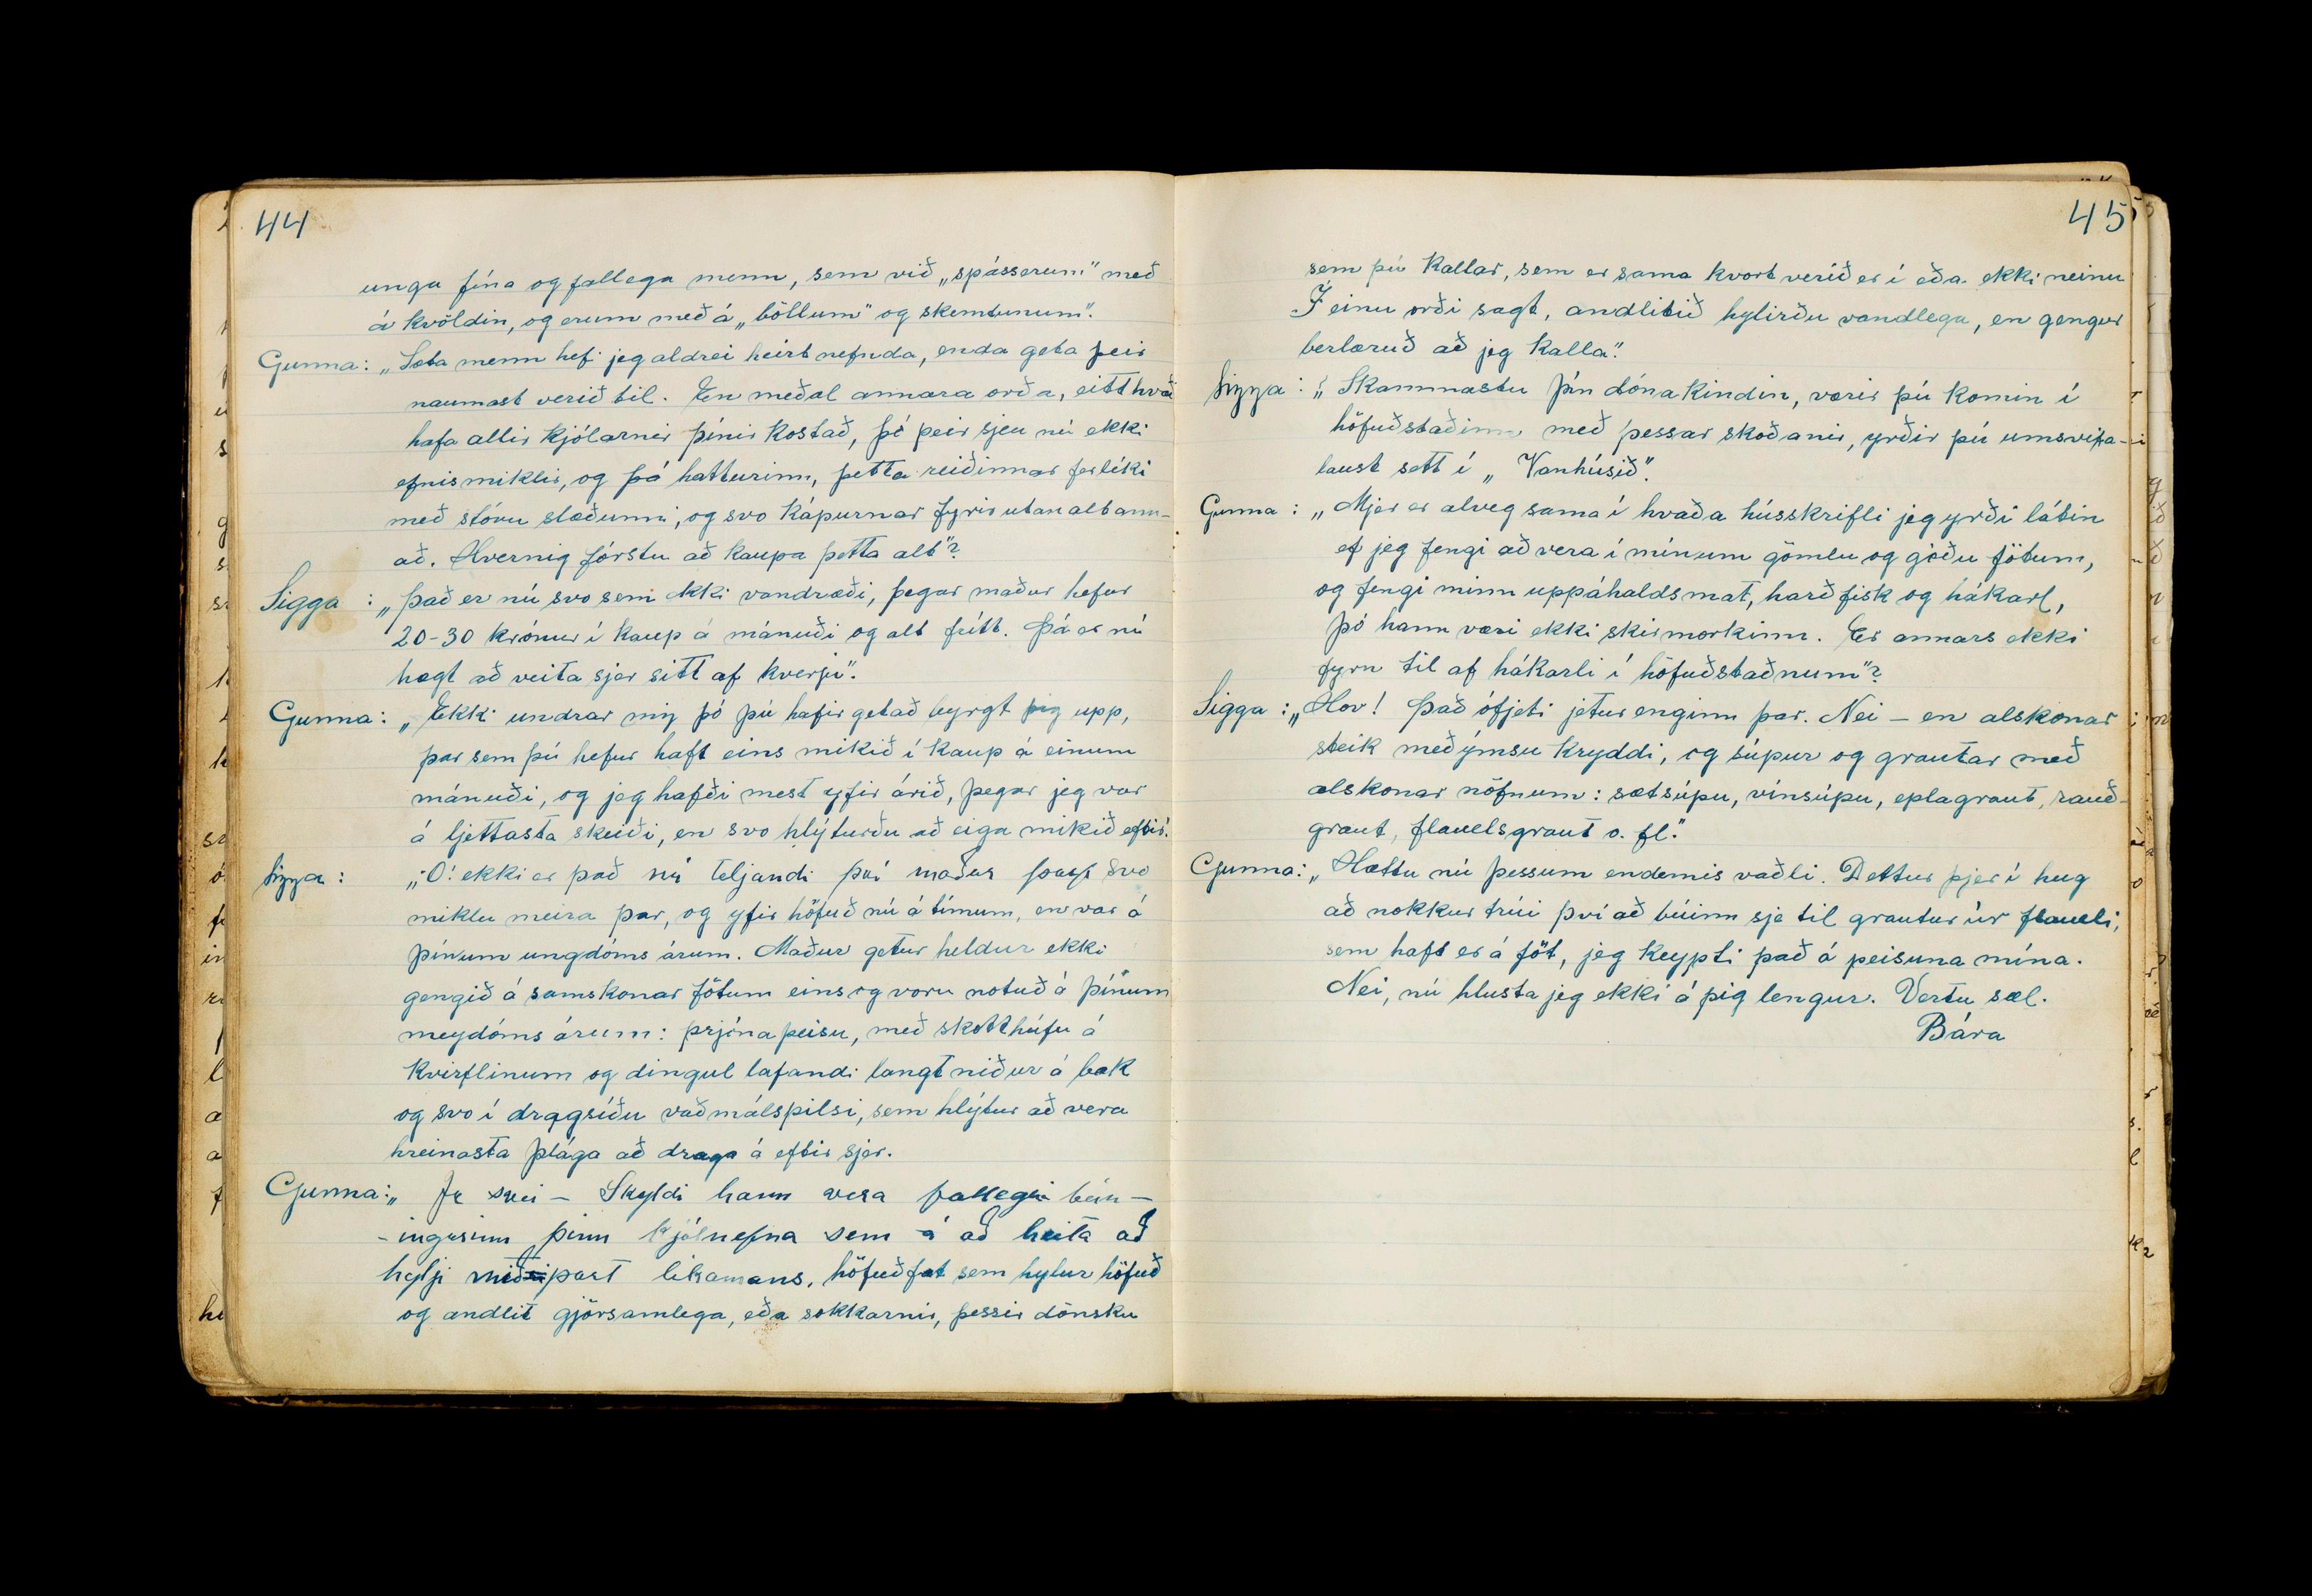 44
unga fína og fallega menn, sem við „spásserum" með
á kvöldin, og erum með á „böllum" og skemtunum".
Gunna: „Sæta menn hefi jeg aldrei heirt nefnda, enda geta þeir
naumast verið til. En meðal annara orða, eitthvað
hafa allir kjólarnir þínir kostað, þó þeir sjeu nú ekki
efnismiklir, og þá hatturinn, þetta reiðinnar ferlíki
með stóru slæðunni, og svo kápurnar fyrir utan alt ann-
að. Hvernig fórstu að kaupa þetta alt"?
Sigga : „Það er nú svo sem ekki vandræði, þegar maður hefur
20-30 krónur í kaup á mánuði og alt frítt. Þá er nú
hægt að veita sjer sitt af hverju".
Gunna: „Ekki undrar mig þó þú hafir getað byrgt þig upp,
þar sem þú hefur haft eins mikið í kaup á einum
mánuði, og jeg hafði mest yfir árið, þegar jeg var
á ljettasta skeiði, en svo hlýturðu að eiga mikið eftir".
Sigga : „Ó! ekki er það nú teljandi því maður þarf svo
miklu meira þar, og yfir höfuð nú á tímum, en var á
þínum ungdóms árum. Maður getur heldur ekki
gengið á samskonar fötum eins og voru notuð á þínum
meydóms árum: prjónapeisu, með skotthúfu á
kvirflinum og dingul lafandi langt niður á bak
og svo í dragsíðu vaðmálspilsi, sem hlýtur að vera
hreinasta plága að draga á eftir sjer.
Gunna: „ Je svei - Skyldi hann vera fallegri bún-
-ingurinn þinn kjólnefna sem á að heita að
hylji miðpart líkamans, höfuðfat sem hylur höfuð
og andlit gjörsamlega, eða sokkarnir, þessir dönsku
45
sem þú kallar, sem er sama hvort verið er í eða ekki neinu
Í einu orði sagt, andlitið hylirðu vandlega, en gengur
berlæruð að jeg kalla".
Sigga : „Skammastu þín dónakindin, værir þú komin í
höfuðstaðinn með þessar skoðanir, yrðir þú umsvifa-
laust sett í „Vanhúsið".
Gunna : „Mjer er alveg sama í hvaða hússkrifli jeg yrði látin
ef jeg fengi að vera í mínum gömlu og góðu fötum,
og fengi minn uppáhaldsmat, harðfisk og hákarl,
þó hann væri ekki skirmorkinn. Er annars ekki
fyrn til af hákarli í höfuðstaðnum"?
Sigga : „Hov! Það ófjeti jetur enginn þar. Nei - en alskonar
steik með ýmsu kryddi, og súpur og grautar með
alskonar nöfnum: sætsúpu, vínsúpu, eplagraut, rauð-
graut, flauelsgraut o. fl."
Gunna: „Hættu nú þessum endemis vaðli. Dettur þjer í hug
að nokkur trúi því að búinn sje til grautur úr flaueli,
sem haft er á föt, jeg keypti það á peisuna mína.
Nei, nú hlusta jeg ekki á þig lengur. Vertu sæl.
Bára